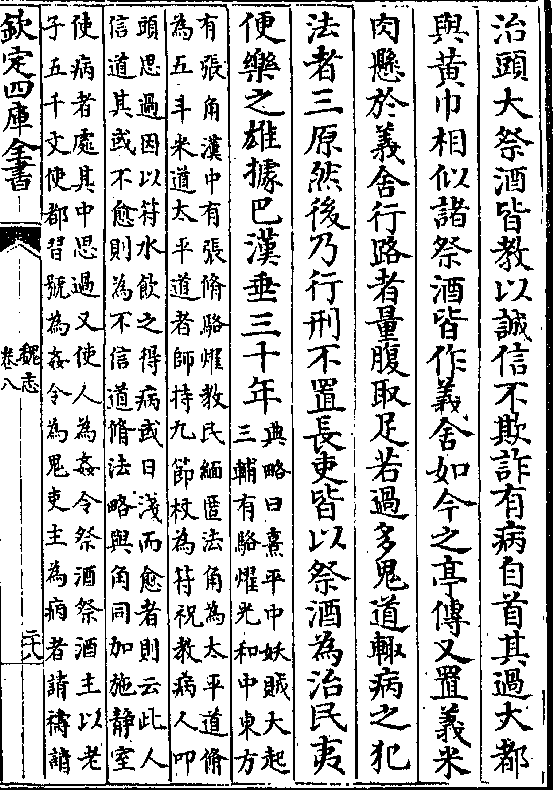 治頭大祭酒皆教以誠信不欺詐有病自首其過大都
與黃巾相似諸祭酒皆作義舍如今之亭傳又置義米
肉懸於義舍行路者量腹取足若過多鬼道輒病之犯
法者三原然後乃行刑不置長吏皆以祭酒為治民夷
便樂之雄據巴漢垂三十年
典略曰熹平中妖賊大起
三輔有駱燿光和中東方
有張角漢中有張脩駱燿教民緬匿法角為太平道脩
為五斗米道太平道者師持九節杖為符祝教病人叩
頭思過因以符水飲之得病或日淺而愈者則云此人
信道其或不愈則為不信道脩法略與角同加施靜室
使病者處其中思過又使人為姦令祭酒祭酒主以老
子五千文使都習號為姦令為鬼吏主為病者請禱請
欽定四庫全書
魏志
卷八